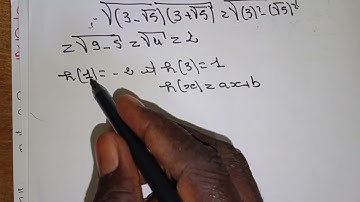 = √(3-√5)(3+√5) = √(3)² - (√5)²
= √9-5 = √4 = 2
h(1) = -2 et h(3) = 1
h(x) = ax+b